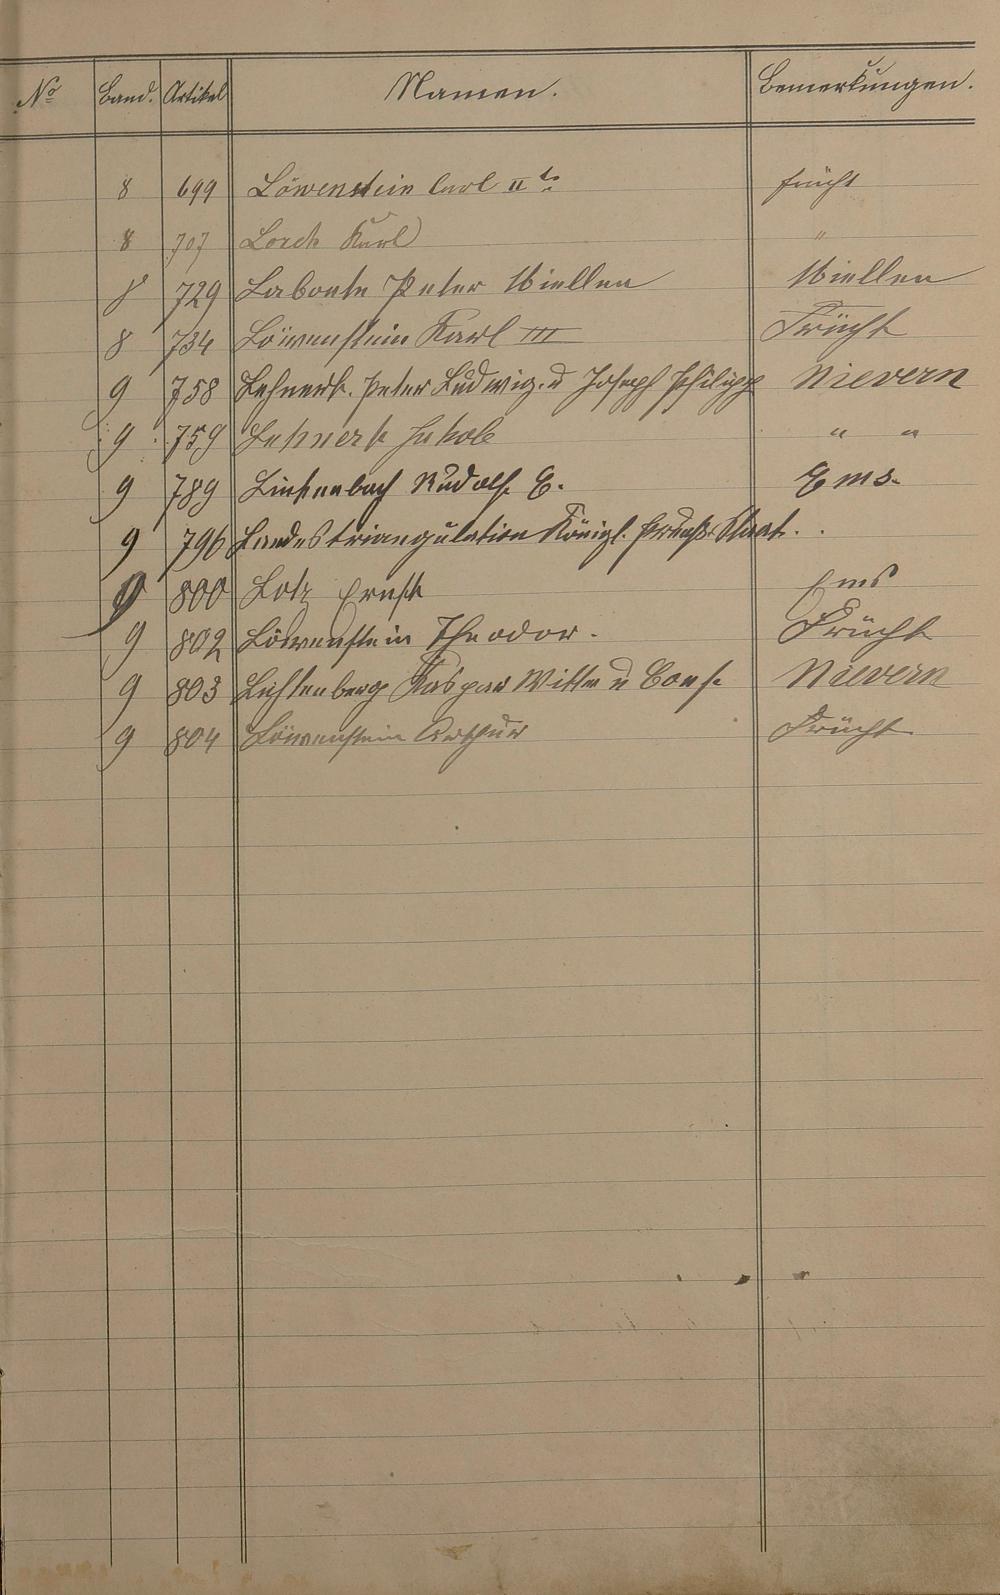 No Band. Artikel Namen. Bemerkungen.
8 699 Löwenstein Carl IIte Frücht
8 707 Lorch Karl "
8 729 Labonte Peter Miellen Miellen
8 734 Löwenstein Karl III Frücht
9 758 Lehnert. Peter Ludwig. u Joseph Philipp Nievern
9 759 Lehnert Jakob " "
9 789 Linkenbach Rudolf E. Ems.
9 796 Landestriangulation Königl. Preuß. Staat.
9 800 Lotz Ernst Ems
9 802 Löwenstein Theodor. Frücht
9 803 Lichtenberg Kaspar Witwe u Cons. Nievern
9 804 Löwenstein Arthur Frücht